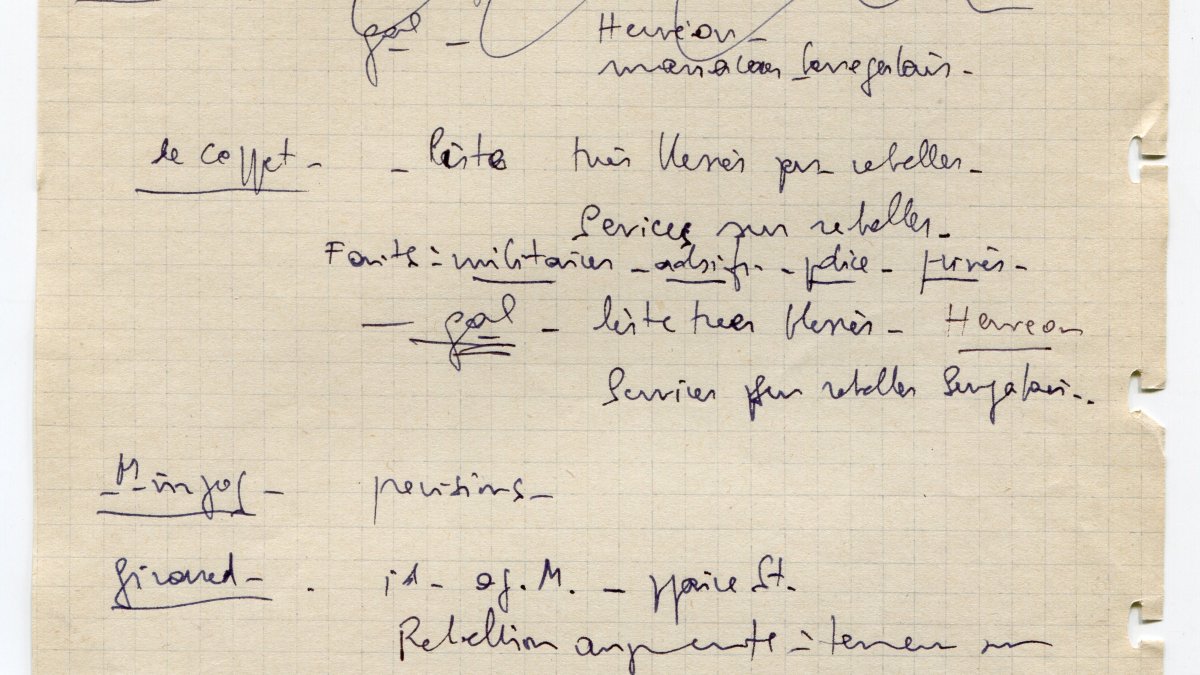 gal - Hewéon -
massacres Senegalais -
de Coppet - - liste tués blessés par rebelles -
Sevices sur rebelles -
Faits : militaires - adsif. - police - privés -
- gal - liste tues blessés - Heweon
Sevices sur rebelles Sengalais -
pensions -
Girard - . id - ag. M. - St.
Rebellion augmente -